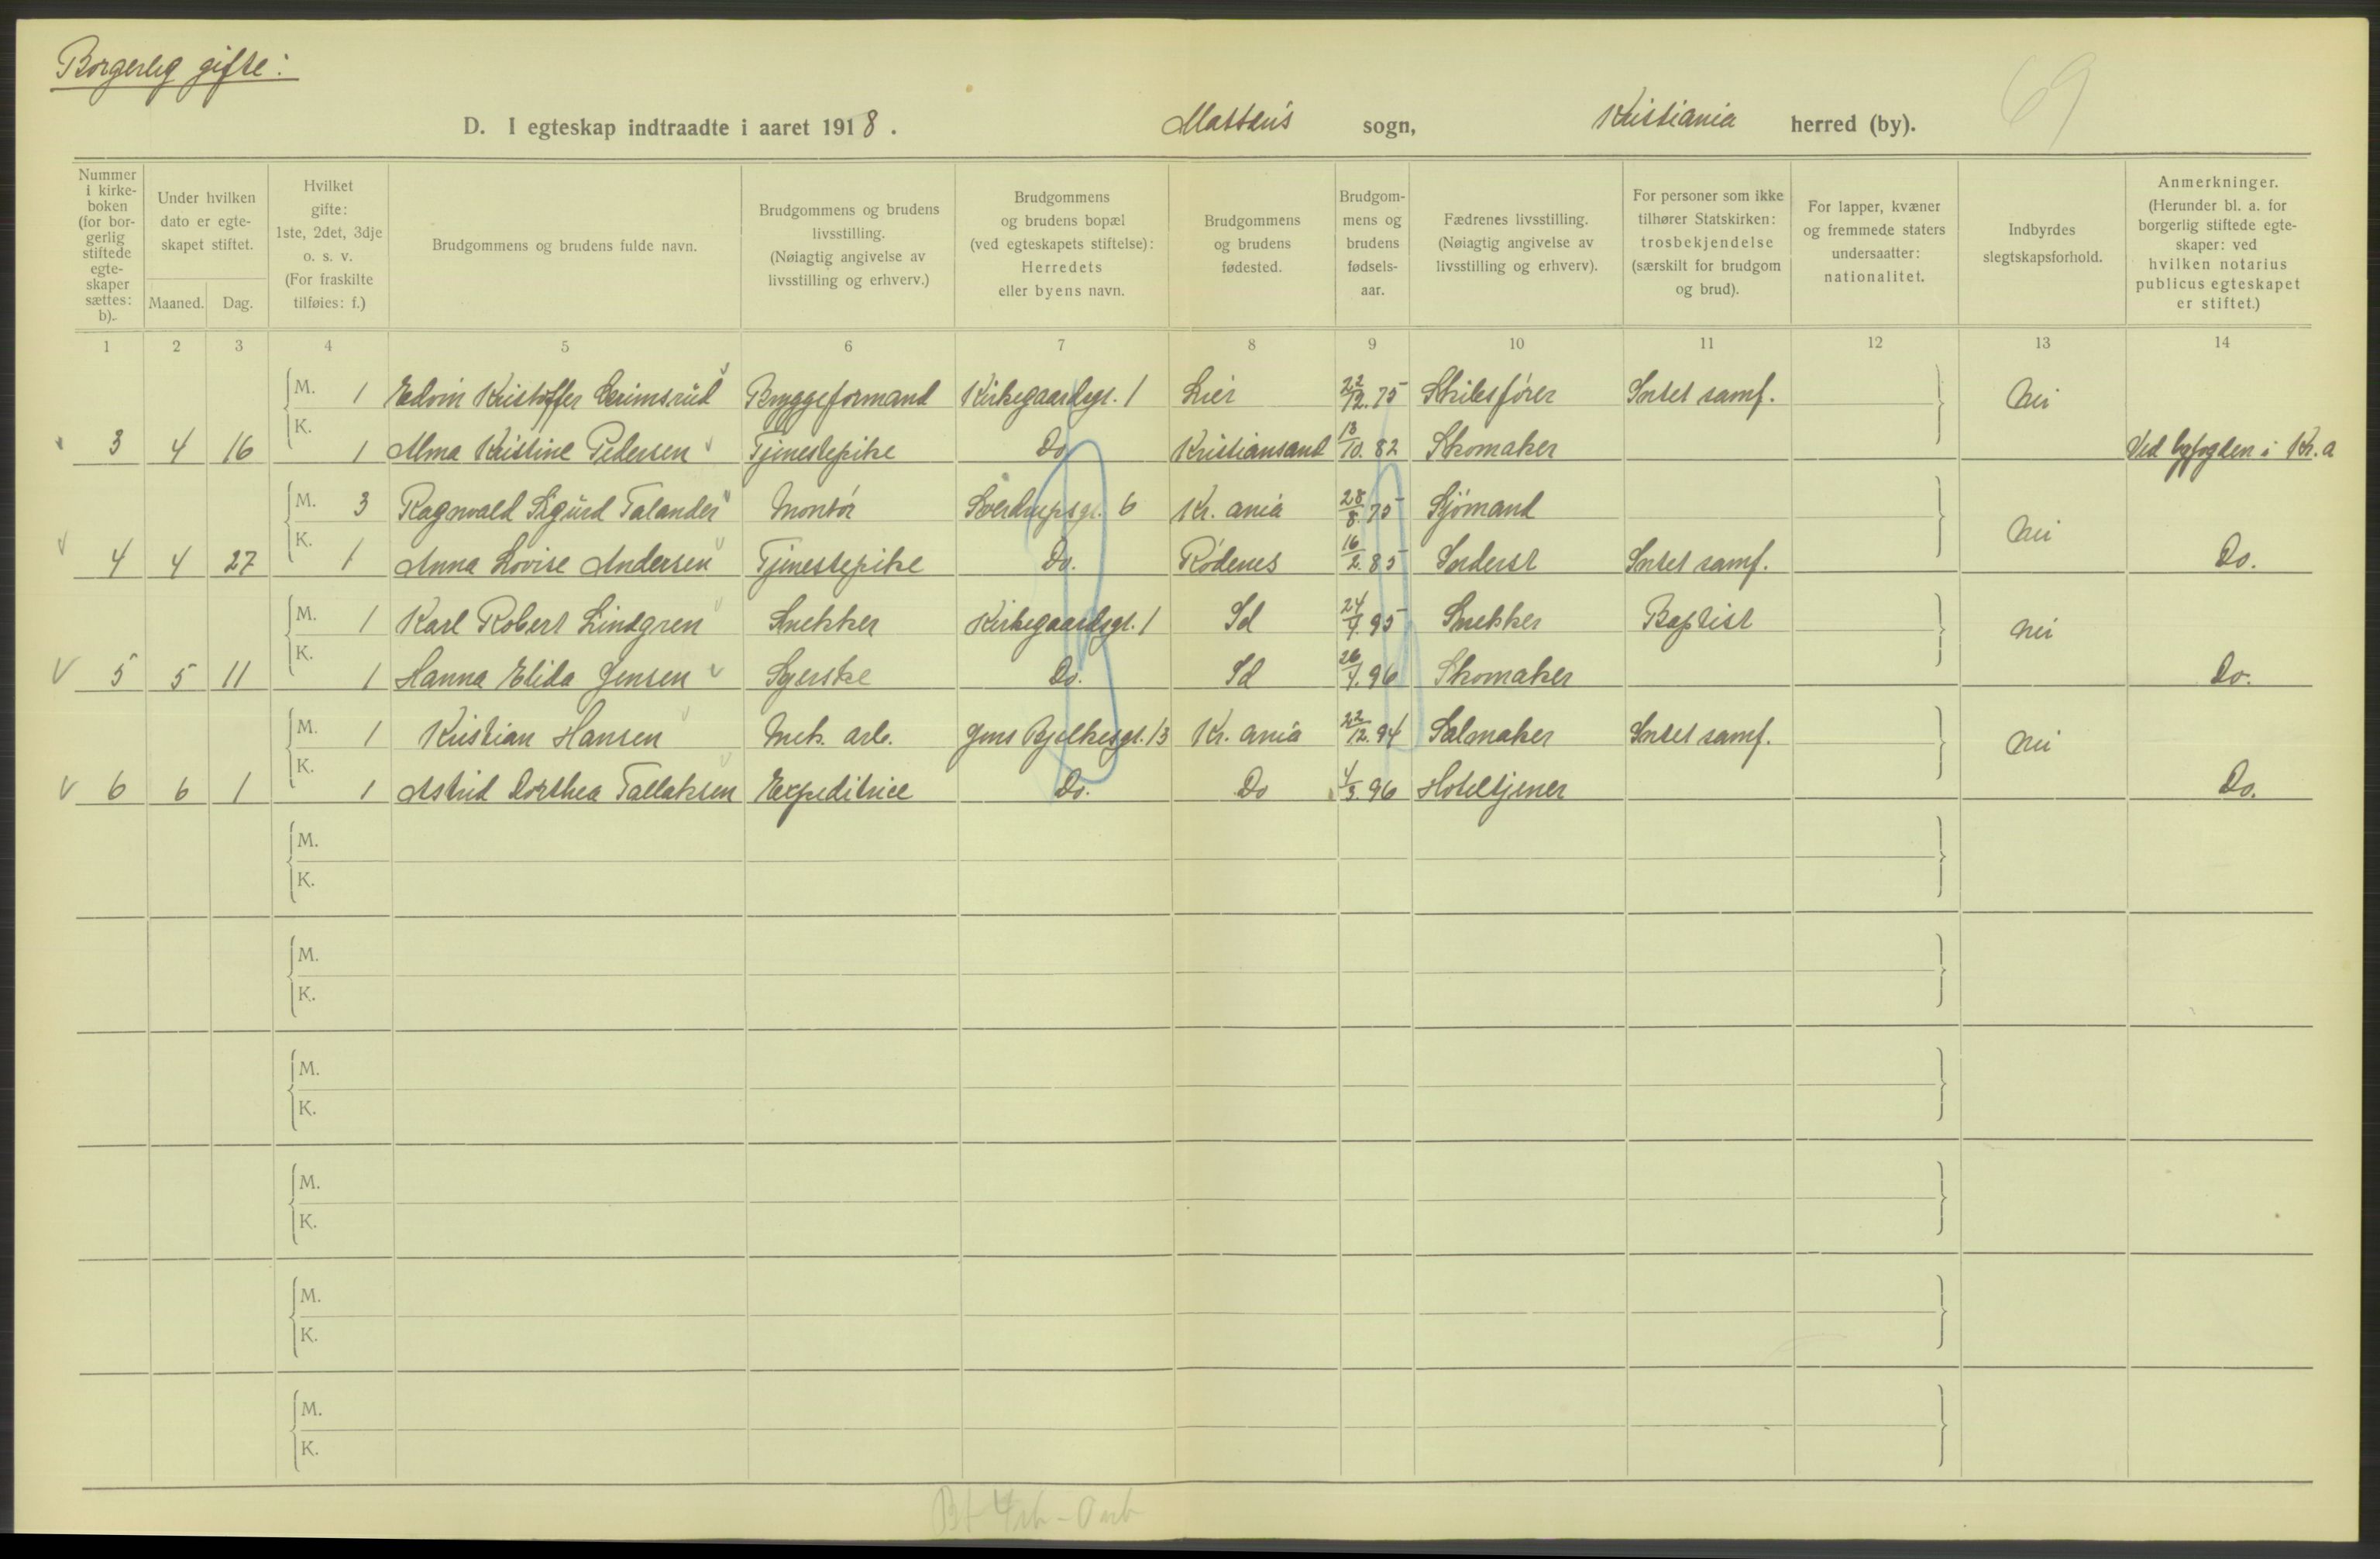 Borgerlig gifte:
D. I egteskap indtraadte i aaret 1918. Mattæus sogn, Kristiania herred (by). 69
Nummer i kirkeboken (for borgerlig stiftede egteskaper sættes: b).
Under hvilken dato er egteskapet stiftet.
Maaned. Dag.
Hvilket gifte: 1ste, 2det, 3dje o. s. v. (For fraskilte tilføies: f.)
Brudgommens og brudens fulde navn.
Brudgommens og brudens livsstilling. (Nøiagtig angivelse av livsstilling og erhverv.)
Brudgommens og brudens bopæl (ved egteskapets stiftelse): Herredets eller byens navn.
Brudgommens og brudens fødested.
Brudgommens og brudens fødselsaar.
Fædrenes livsstilling. (Nøiagtig angivelse av livsstilling og erhverv).
For personer som ikke tilhører Statskirken: trosbekjendelse (særskilt for brudgom og brud).
For lapper, kvæner og fremmede staters undersaatter: nationalitet.
Indbyrdes slegtskapsforhold.
Anmerkninger. (Herunder bl. a. for borgerlig stiftede egteskaper: ved hvilken notarius publicus egteskapet er stiftet.)
1 2 3 4 5 6 7 8 9 10 11 12 13 14
M. 1 Edvin Kristoffer Leeimsrud Byggeformand Kirkegaardsgt. 1 Lier 22/12. 75 Skibsfører Intet samf. Nei
3 4 16 K. 1 Alma Kristine Pedersen Tjenestepike Do. Kristiansand 13/10. 82 Skomaker Ved byfogden i Kr.a
M. 3 Ragnvald Sigurd Talander Montør Sverdrupsgt. 6 Kr. ania 28/8. 75 Sjømand Nei
4 4 27 K. 1 Anna Lovise Andersen Tjenestepike Do. Rødenes 16/2. 85 Inderst Intet samf. Do.
M. 1 Karl Robert Lindgren Snekker Kirkegaardsgt. 1 Id 24/7. 95 Snekker Baptist Nei
5 5 11 K. 1 Hanna Elida Jensen Syerske Do. Id 26/7. 96 Skomaker Do.
M. 1 Kristian Hansen Mek. arb. Jens Bjelkesgt. 13 Kr. ania 22/12. 94 Salmaker Intet samf. Nei
6 6 1 K. 1 Astrid Dorthea Tallaksen Expeditrice Do. Do 4/3. 96 Hoteltjener Do.
M.
K.
M.
K.
M.
K.
M.
K.
M.
K.
M.
K.